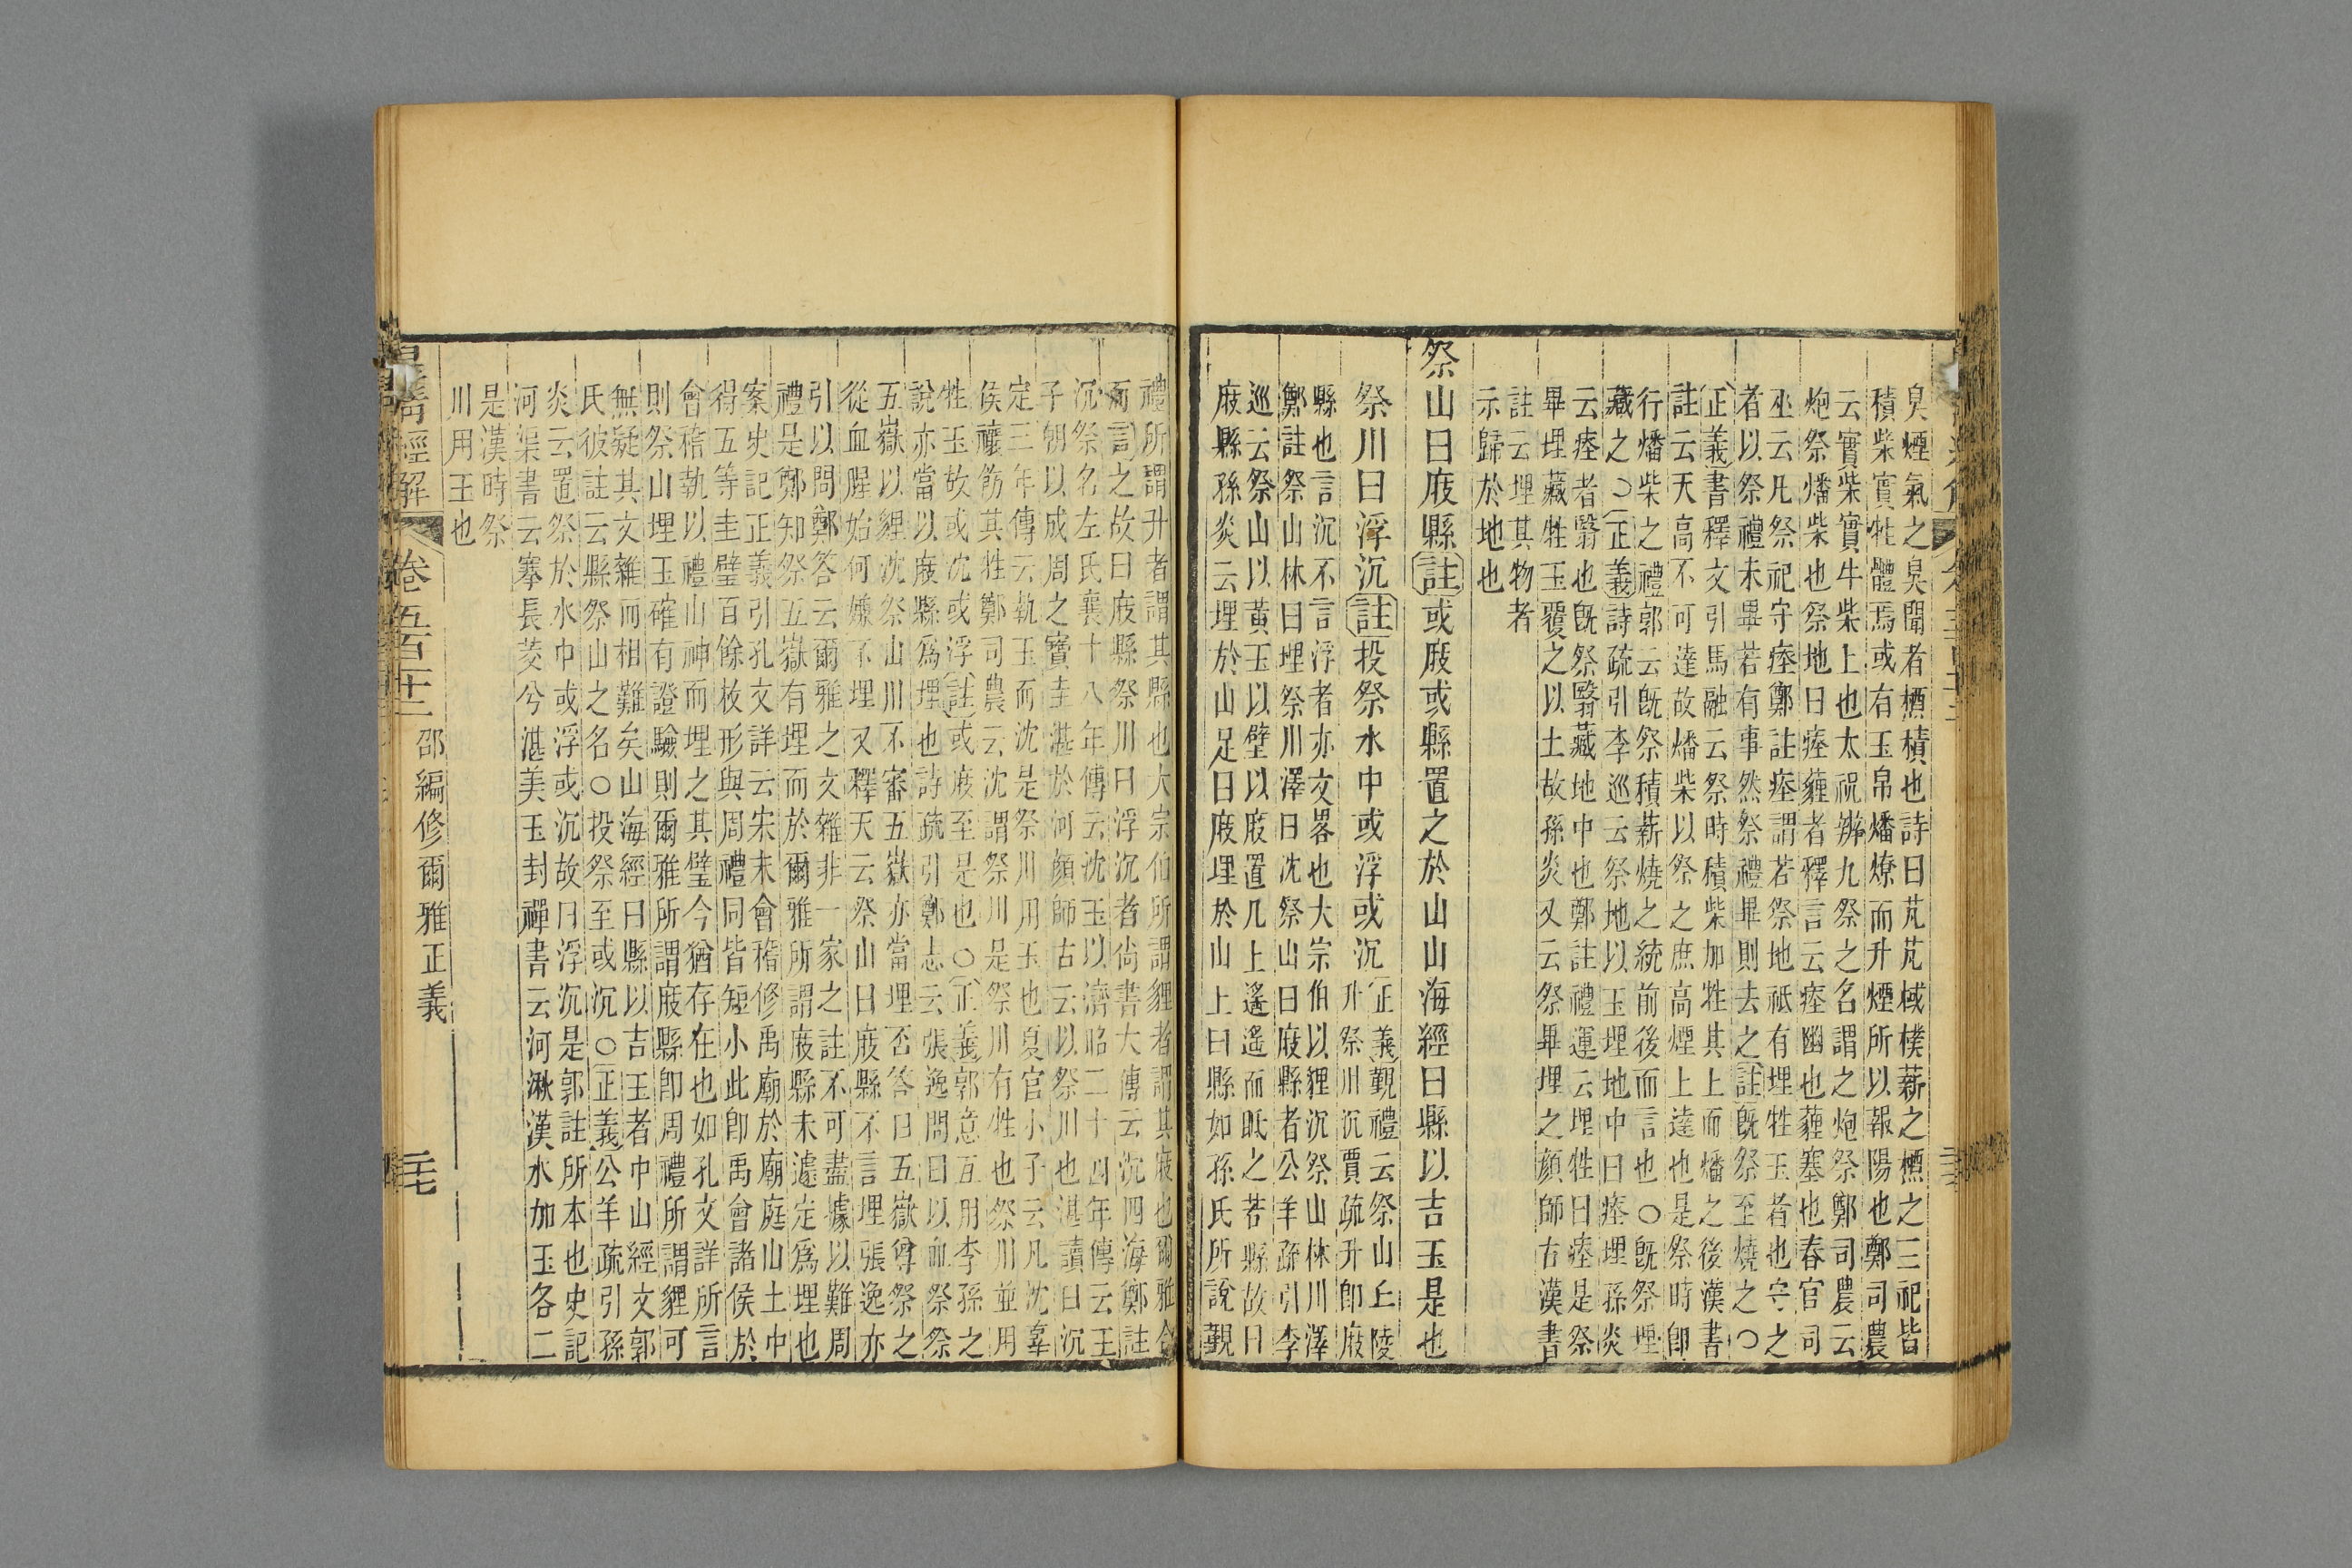 臭煙氣之臭聞者槱積也詩曰芃芃棫樸薪之槱之三祀皆
積柴實牲體焉或有玉帛燔燎而升煙所以報陽也鄭司農
云實柴實牛柴上也太祝辨九祭之名謂之炮祭鄭司農云
炮祭燔柴也祭地曰瘞薶者釋言云瘞幽也薶塞也春官司
巫云凡祭祀守瘞鄭註瘞謂若祭地祗有埋牲玉者也守之
者以祭禮未畢若有事然祭禮畢則去之註旣祭至燒之○
正義書釋文引馬融云祭時積柴加牲其上而燔之後漢書
註云天高不可達故燔柴以祭之庶高煙上達也是祭時卽
行燔柴之禮郭云旣祭積薪燒之統前後而言也○旣祭埋
藏之○正義詩疏引李巡云祭地以玉埋地中曰瘞埋孫炎
云瘞者翳也旣祭翳藏地中也鄭註禮運云埋牲曰瘞是祭
畢埋藏牲玉覆之以土故孫炎又云祭畢埋之顔師古漢書
註云埋其物者
示歸於地也
祭山曰庪縣註或庪或縣置之於山山海經曰縣以吉玉是也
祭川曰浮沉註投祭水中或浮或沉
正義覲禮云祭山丘陵
升祭川沉賈疏升卽庪
縣也言沉不言浮者亦文畧也大宗伯以貍沉祭山林川澤
鄭註祭山林曰埋祭川澤曰沈祭山曰庪縣者公羊疏引李
巡云祭山以黃玉以壁以庪置几上遙遙而眡之若縣故曰
庪縣孫炎云埋於山足曰庪埋於山上曰縣如孫氏所說覲
禮所謂升者謂其縣也大宗伯所謂貍者謂其庪也爾雅合
而言之故曰庪縣祭川曰浮沉者尙書大傳云沉四海鄭註
沉祭名左氏襄十八年傳云沈玉以濟昭二十四年傳云王
子朝以成周之寶圭湛於河顔師古云以祭川也湛讀曰沉
定三年傳云執玉而沈是祭川用玉也夏官小子云凡沈辜
侯禳飾其牲鄭司農云沈謂祭川是祭川有牲也祭川並用
牲玉故或沈或浮註或庪至是也○正義郭意互用李孫之
說亦當以庪縣爲埋也詩疏引鄭志云張逸問曰以血祭祭
五嶽以貍沈祭山川不審五嶽亦當埋否答曰五嶽尊祭之
從血腥始何嫌不埋又釋天云祭山曰庪縣不言埋張逸亦
引以問鄭答云爾雅之文雜非一家之註不可盡據以難周
禮是鄭知祭五嶽有埋而於爾雅所謂庪縣未遽定爲埋也
案史記正義引孔文詳云宋末會稽修禹廟於廟庭山土中
得五等圭璧百餘枚形與周禮同皆短小此卽禹會諸侯於
會稽執以禮山神而埋之其璧今猶存在也如孔文詳所言
則祭山埋玉確有證驗則爾雅所謂庪縣卽周禮所謂貍可
無疑其文雜而相難矣山海經曰縣以吉玉者中山經文郭
氏彼註云縣祭山之名○投祭至或沉○正義公羊疏引孫
炎云置祭於水中或浮或沉故曰浮沉是郭註所本也史記
河渠書云搴長茭兮湛美玉封禪書云河湫漢水加玉各二
是漢時祭
川用玉也
皇淸經解 卷五百二十二 邵編修爾雅正義 二七